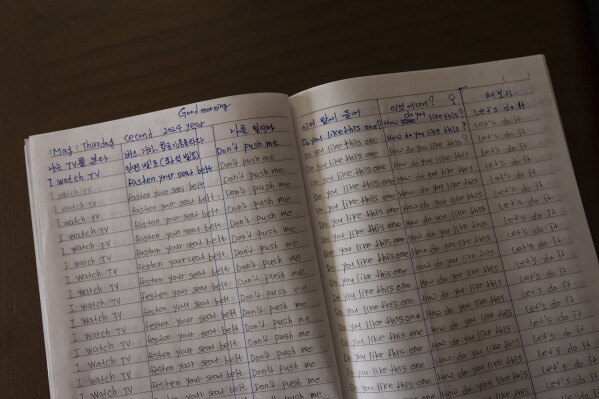 Good morning
May Thursday second 2024 year
나는 TV를 본다
나를 밀지마
I watch TV fasten your seat belt Don't push me
I watch TV fasten your seat belt Don't push me
I watch TV fasten your seat belt Don't push me
I watch TV fasten your seat belt Don't push me
I watch TV fasten your seat belt Don't push me
I watch TV fasten your seat belt Don't push me
I watch TV fasten your seat belt Don't push me
I watch TV fasten your seat belt Don't push me
I watch TV fasten your seat belt Don't push me
I watch TV fasten your seat belt Don't push me
I watch TV fasten your seat belt Don't push me
I watch TV fasten your seat belt Don't push me
I watch TV fasten your seat belt Don't push me
이것 어때? 해보자
Do you like this one? How do you like this? Let's do it
Do you like this one How do you like this? Let's do it
Do you like this one How do you like this? Let's do it
Do you like this one How do you like this Let's do it
Do you like this one How do you like this Let's do it
Do you like this one How do you like this Let's do it
Do you like this one How do you like this Let's do it
Do you like this one How do you like this Let's do it
Do you like this one How do you like this Let's do it
Do you like this one How do you like this Let's do it
Do you like this one How do you like this Let's do it
Do you like this one How do you like this Let's do it
Do you like this one How do you like this Let's do it
Do you like this one How do you like this Let's do it
Do you like this one How do you like this Let's do it